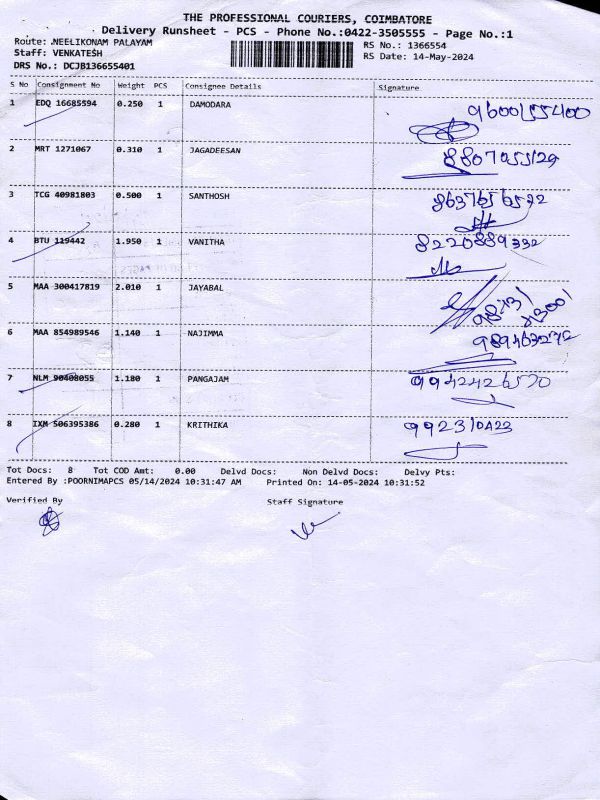 THE PROFESSIONAL COURIERS, COIMBATORE
Delivery Runsheet - PCS - Phone No.:0422-3505555 - Page No.:1
Route: NEELIKONAM PALAYAM
Staff: VENKATESH
DRS No.: DCJB136655401
RS No.: 1366554
RS Date: 14-May-2024
S No Consignment No Weight PCS Consignee Details Signature
1 EDQ 16685594 0.250 1 DAMODARA 9600155400
2 MRT 1271067 0.310 1 JAGADEESAN 8807055129
3 TCG 40981803 0.500 1 SANTHOSH
4 BTU 119442 1.950 1 VANITHA 8220889332
5 MAA 300417819 2.010 1 JAYABAL
6 MAA 854989546 1.140 1 NAJIMMA 989463272
7 NLM 90408055 1.180 1 PANGAJAM 9942426570
8 IXM 506395386 0.280 1 KRITHIKA 992310423
Tot Docs: 8 Tot COD Amt: 0.00 Delvd Docs: Non Delvd Docs: Delvy Pts:
Entered By :POORNIMAPCS 05/14/2024 10:31:47 AM Printed On: 14-05-2024 10:31:52
Verified By Staff Signature